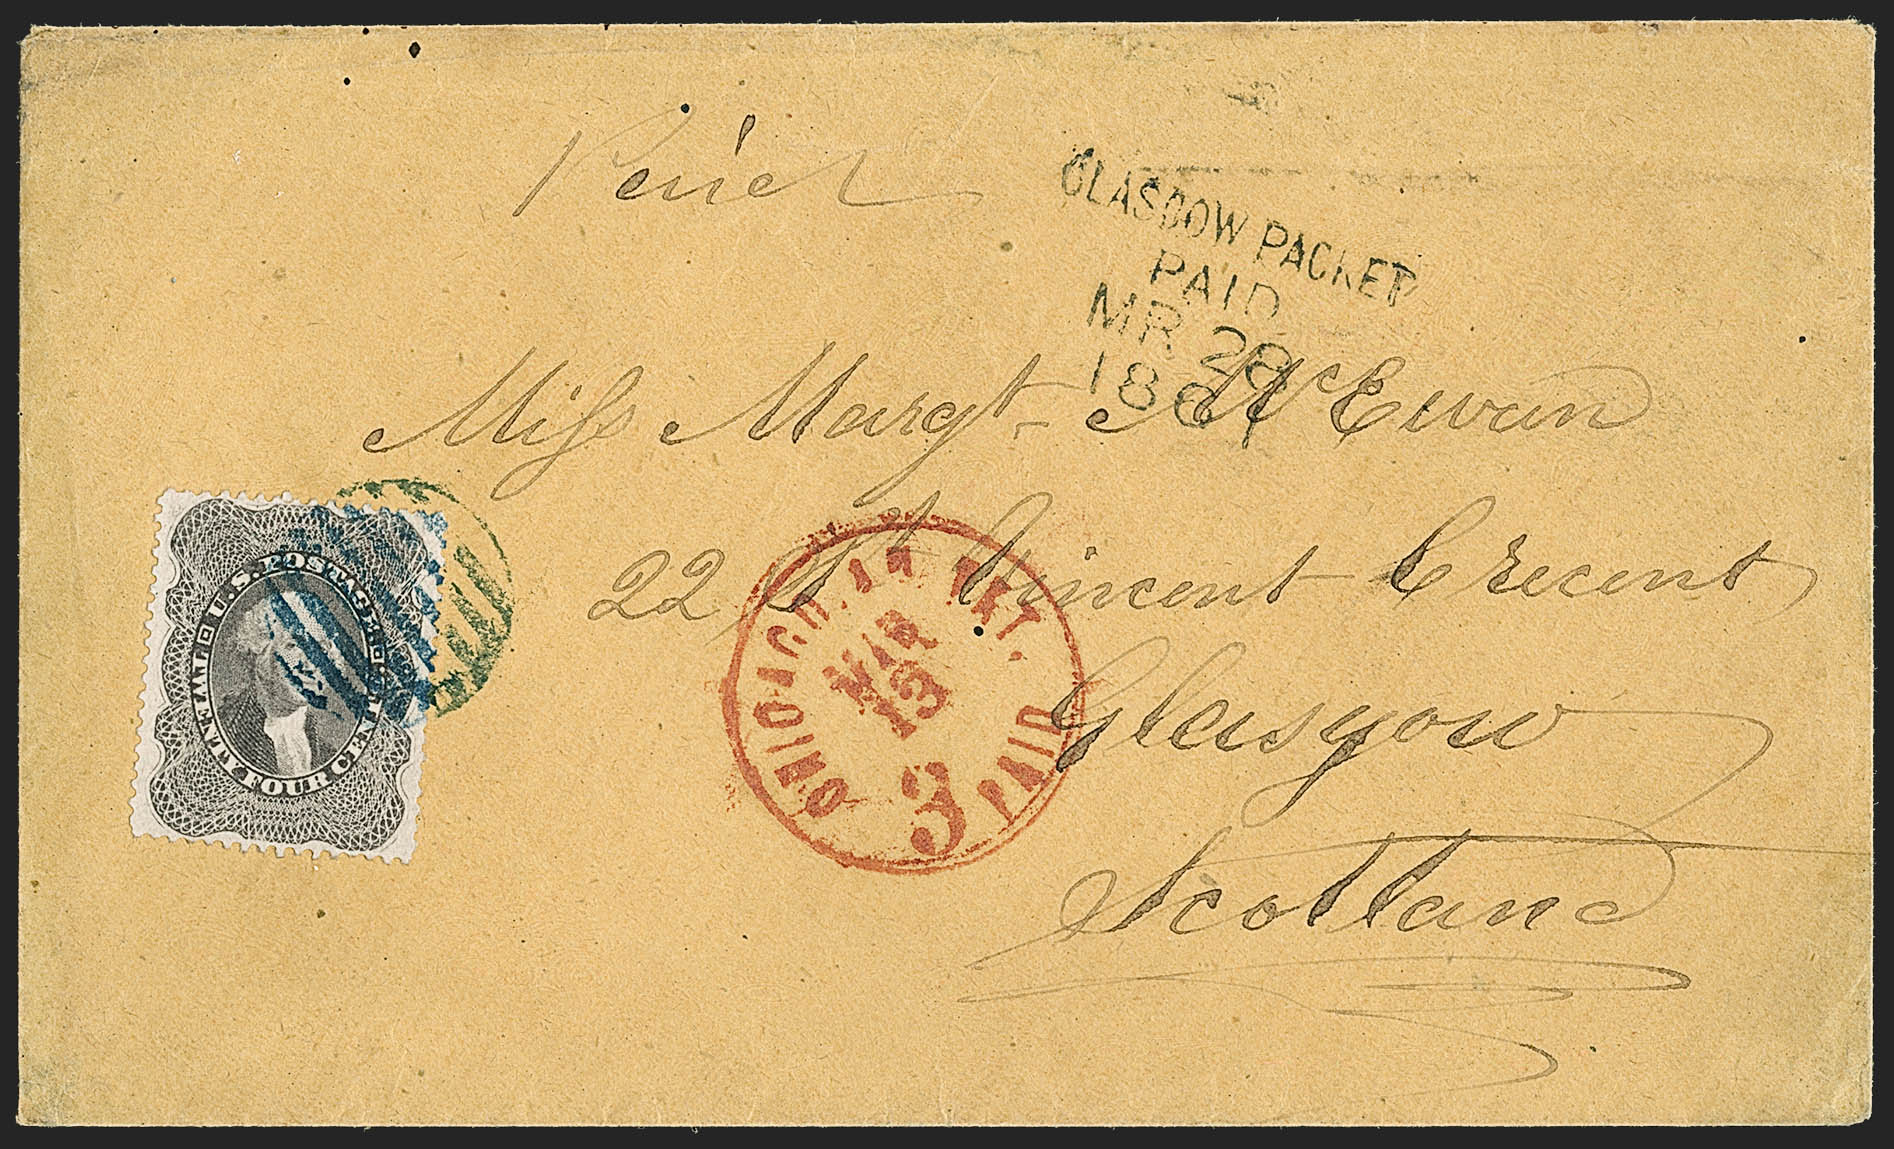 GLASGOW PACKET
PAID
MR 28
1861
Miss Margt McEwan
22 St Vincent Crecent
Glasgow
Scotland
U.S. POSTAGE
TWENTY FOUR CENTS
CHICAGO
MAR
13
3
PAID